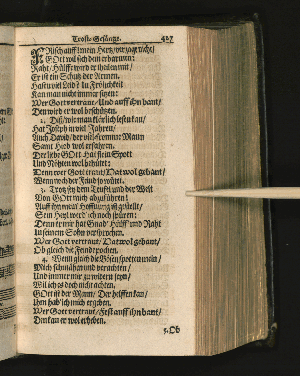 Trost-Gesänge. 427
Frisch auff! mein Hertz/verzage nicht/
GOtt wil sich dein erbarmen:
Raht/Hülffe wird er theilen mit/
Er ist ein Schutz der Armen.
Hastu viel Leid? In Fröligkeit
Kan man nicht immer sitzen:
Wer Gott vertraut/Und auff ihn baut/
Den wird er wol beschützen.
2. Diß/wie man klärlich lesen kan/
Hat Joseph in viel Jahren/
Auch David/der viel-fromme Mann
Samt Hiob wol erfahren.
Der liebe GOtt Hat sie in Spott
Und Nöhten wol behütet:
Denn wer Gott vertraut/Hat wol gebaut/
Wenn noch der Feind so wütet.
3. Trotz sey dem Teufel und der Welt
Von GOtt mich abzuführen!
Auff ihn mein Hoffnung ist gestellt/
Sein Heyl werd' ich noch spüren:
Denn er mir hat Gnad/Hülff und Raht
In seinem Sohn versprochen.
Wer Gott vertraut/Hat wol gebaut/
Ob gleich die Feinde pochen.
4. Wenn gleich die Bösen spotten mein/
Mich schmähen und verachten/
Und immer mir zuwidern seyn/
Wil ich es doch nicht achten.
GOtt ist der Mann/Der helffen kan/
Ihm hab' ich mich ergeben.
Wer Gott vertraut/Fest auff ihn baut/
Den kan er wol erheben.
5. Ob